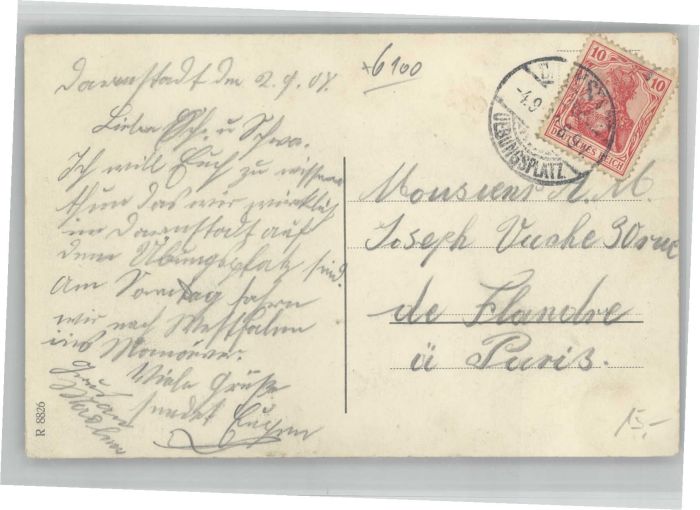 Darmstadt den 2.9.07.
+6100
Lieber Sch. u Schwa.
Ich will Euch zu wissen
thun das wir wirklich
in Darmstadt auf
dem Übungsplatz sind.
Am Sonntag fahren
wir nach Westfalen
ins Manöver.
Viele Grüße
sendet Eugen
Gruß an
10
10
DEUTSCHES REICH
-4.9
UEBUNGSPLATZ
Monsieur A. M.
Joseph Vuche 30 rue
de Flandre
à Paris.
R 8826
15,-